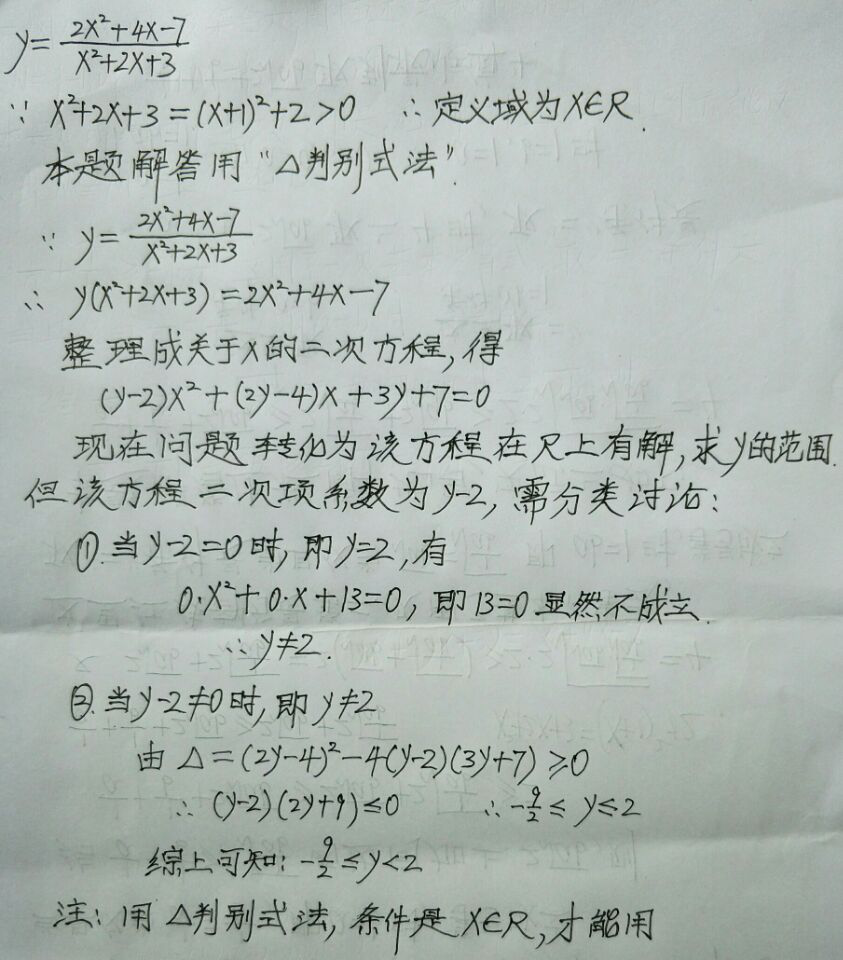 y=\frac{2x²+4x-7}{x²+2x+3}
∵ x²+2x+3=(x+1)²+2>0 ∴定义域为x∈R.
本题解答用“△判别式法”.
∵ y=\frac{2x²+4x-7}{x²+2x+3}
∴ y(x²+2x+3)=2x²+4x-7
整理成关于x的二次方程,得
(y-2)x²+(2y-4)x+3y+7=0
现在问题转化为该方程在R上有解,求y的范围.
但该方程二次项系数为y-2,需分类讨论:
①.当y-2=0时,即y=2,有
0·x²+0·x+13=0,即13=0显然不成立.
∴y≠2.
②.当y-2≠0时,即y≠2
由△=(2y-4)²-4(y-2)(3y+7)≥0
∴(y-2)(2y+9)≤0 ∴-\frac{9}{2}≤y≤2
综上可知:-\frac{9}{2}≤y<2
注:用△判别式法,条件是x∈R,才能用